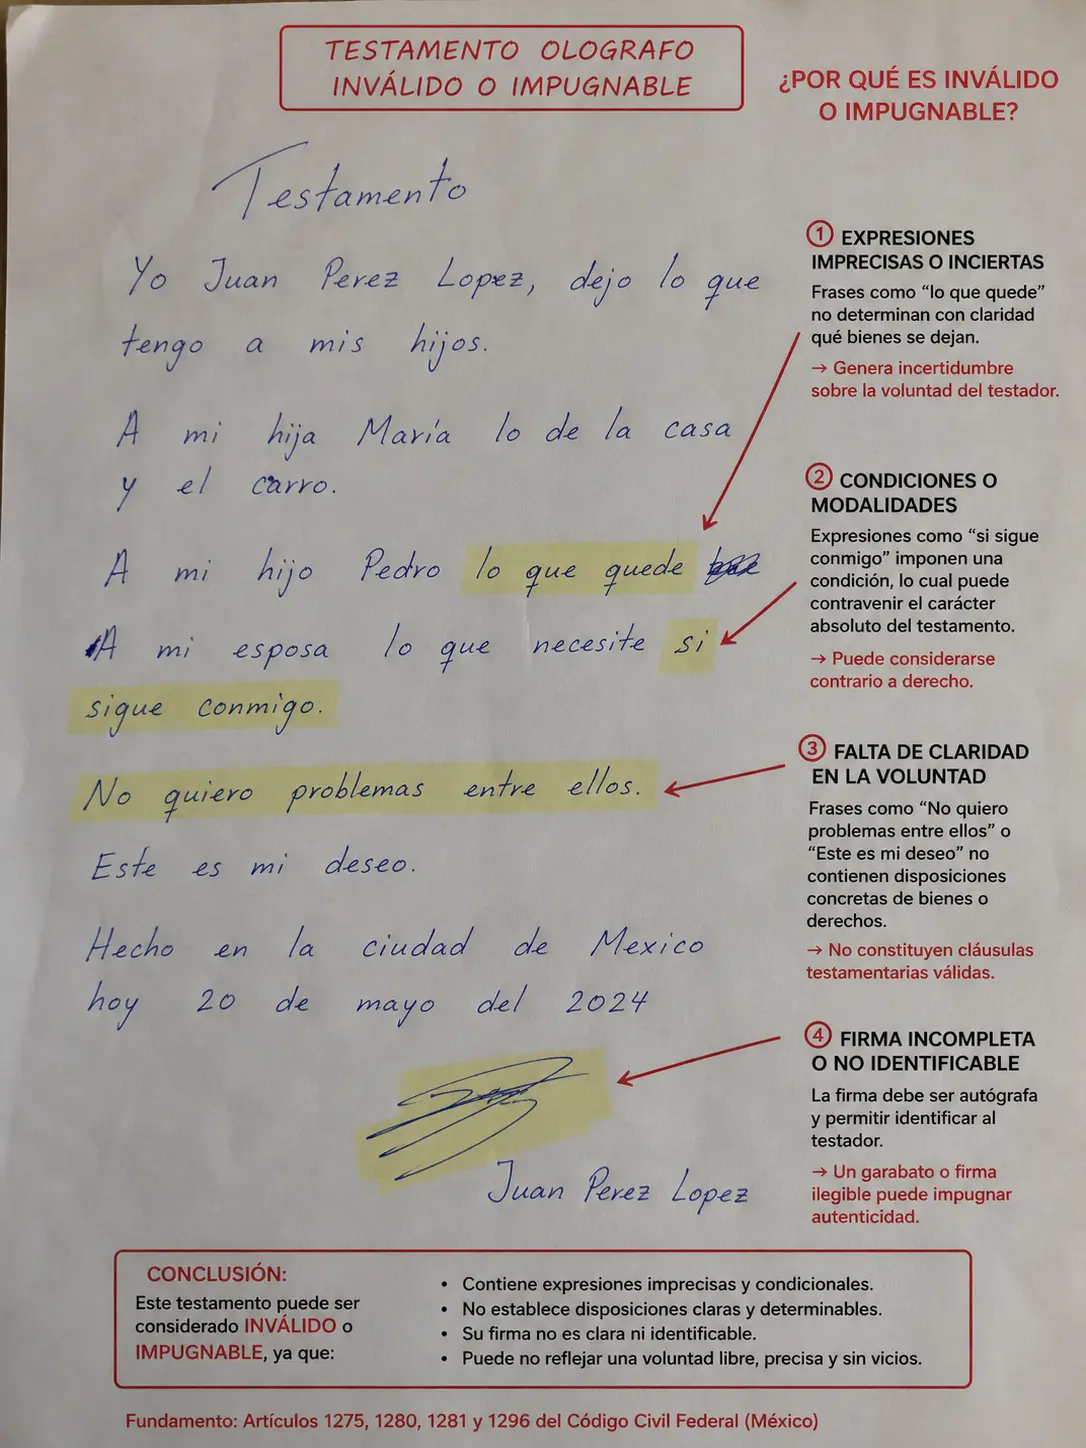 TESTAMENTO OLOGRAFO
INVÁLIDO O IMPUGNABLE
¿POR QUÉ ES INVÁLIDO
O IMPUGNABLE?
Testamento
Yo Juan Perez Lopez, dejo lo que
tengo a mis hijos.
A mi hija María lo de la casa
y el carro.
A mi hijo Pedro lo que quede
A mi esposa lo que necesite si
sigue conmigo.
No quiero problemas entre ellos.
Este es mi deseo.
Hecho en la ciudad de Mexico
hoy 20 de mayo del 2024
Juan Perez Lopez
1 EXPRESIONES
IMPRECISAS O INCIERTAS
Frases como “lo que quede”
no determinan con claridad
qué bienes se dejan.
→ Genera incertidumbre
sobre la voluntad del testador.
2 CONDICIONES O
MODALIDADES
Expresiones como “si sigue
conmigo” imponen una
condición, lo cual puede
contravenir el carácter
absoluto del testamento.
→ Puede considerarse
contrario a derecho.
3 FALTA DE CLARIDAD
EN LA VOLUNTAD
Frases como “No quiero
problemas entre ellos” o
“Este es mi deseo” no
contienen disposiciones
concretas de bienes o
derechos.
→ No constituyen cláusulas
testamentarias válidas.
4 FIRMA INCOMPLETA
O NO IDENTIFICABLE
La firma debe ser autógrafa
y permitir identificar al
testador.
→ Un garabato o firma
ilegible puede impugnar
autenticidad.
CONCLUSIÓN:
Este testamento puede ser
considerado INVÁLIDO o
IMPUGNABLE, ya que:
• Contiene expresiones imprecisas y condicionales.
• No establece disposiciones claras y determinables.
• Su firma no es clara ni identificable.
• Puede no reflejar una voluntad libre, precisa y sin vicios.
Fundamento: Artículos 1275, 1280, 1281 y 1296 del Código Civil Federal (México)